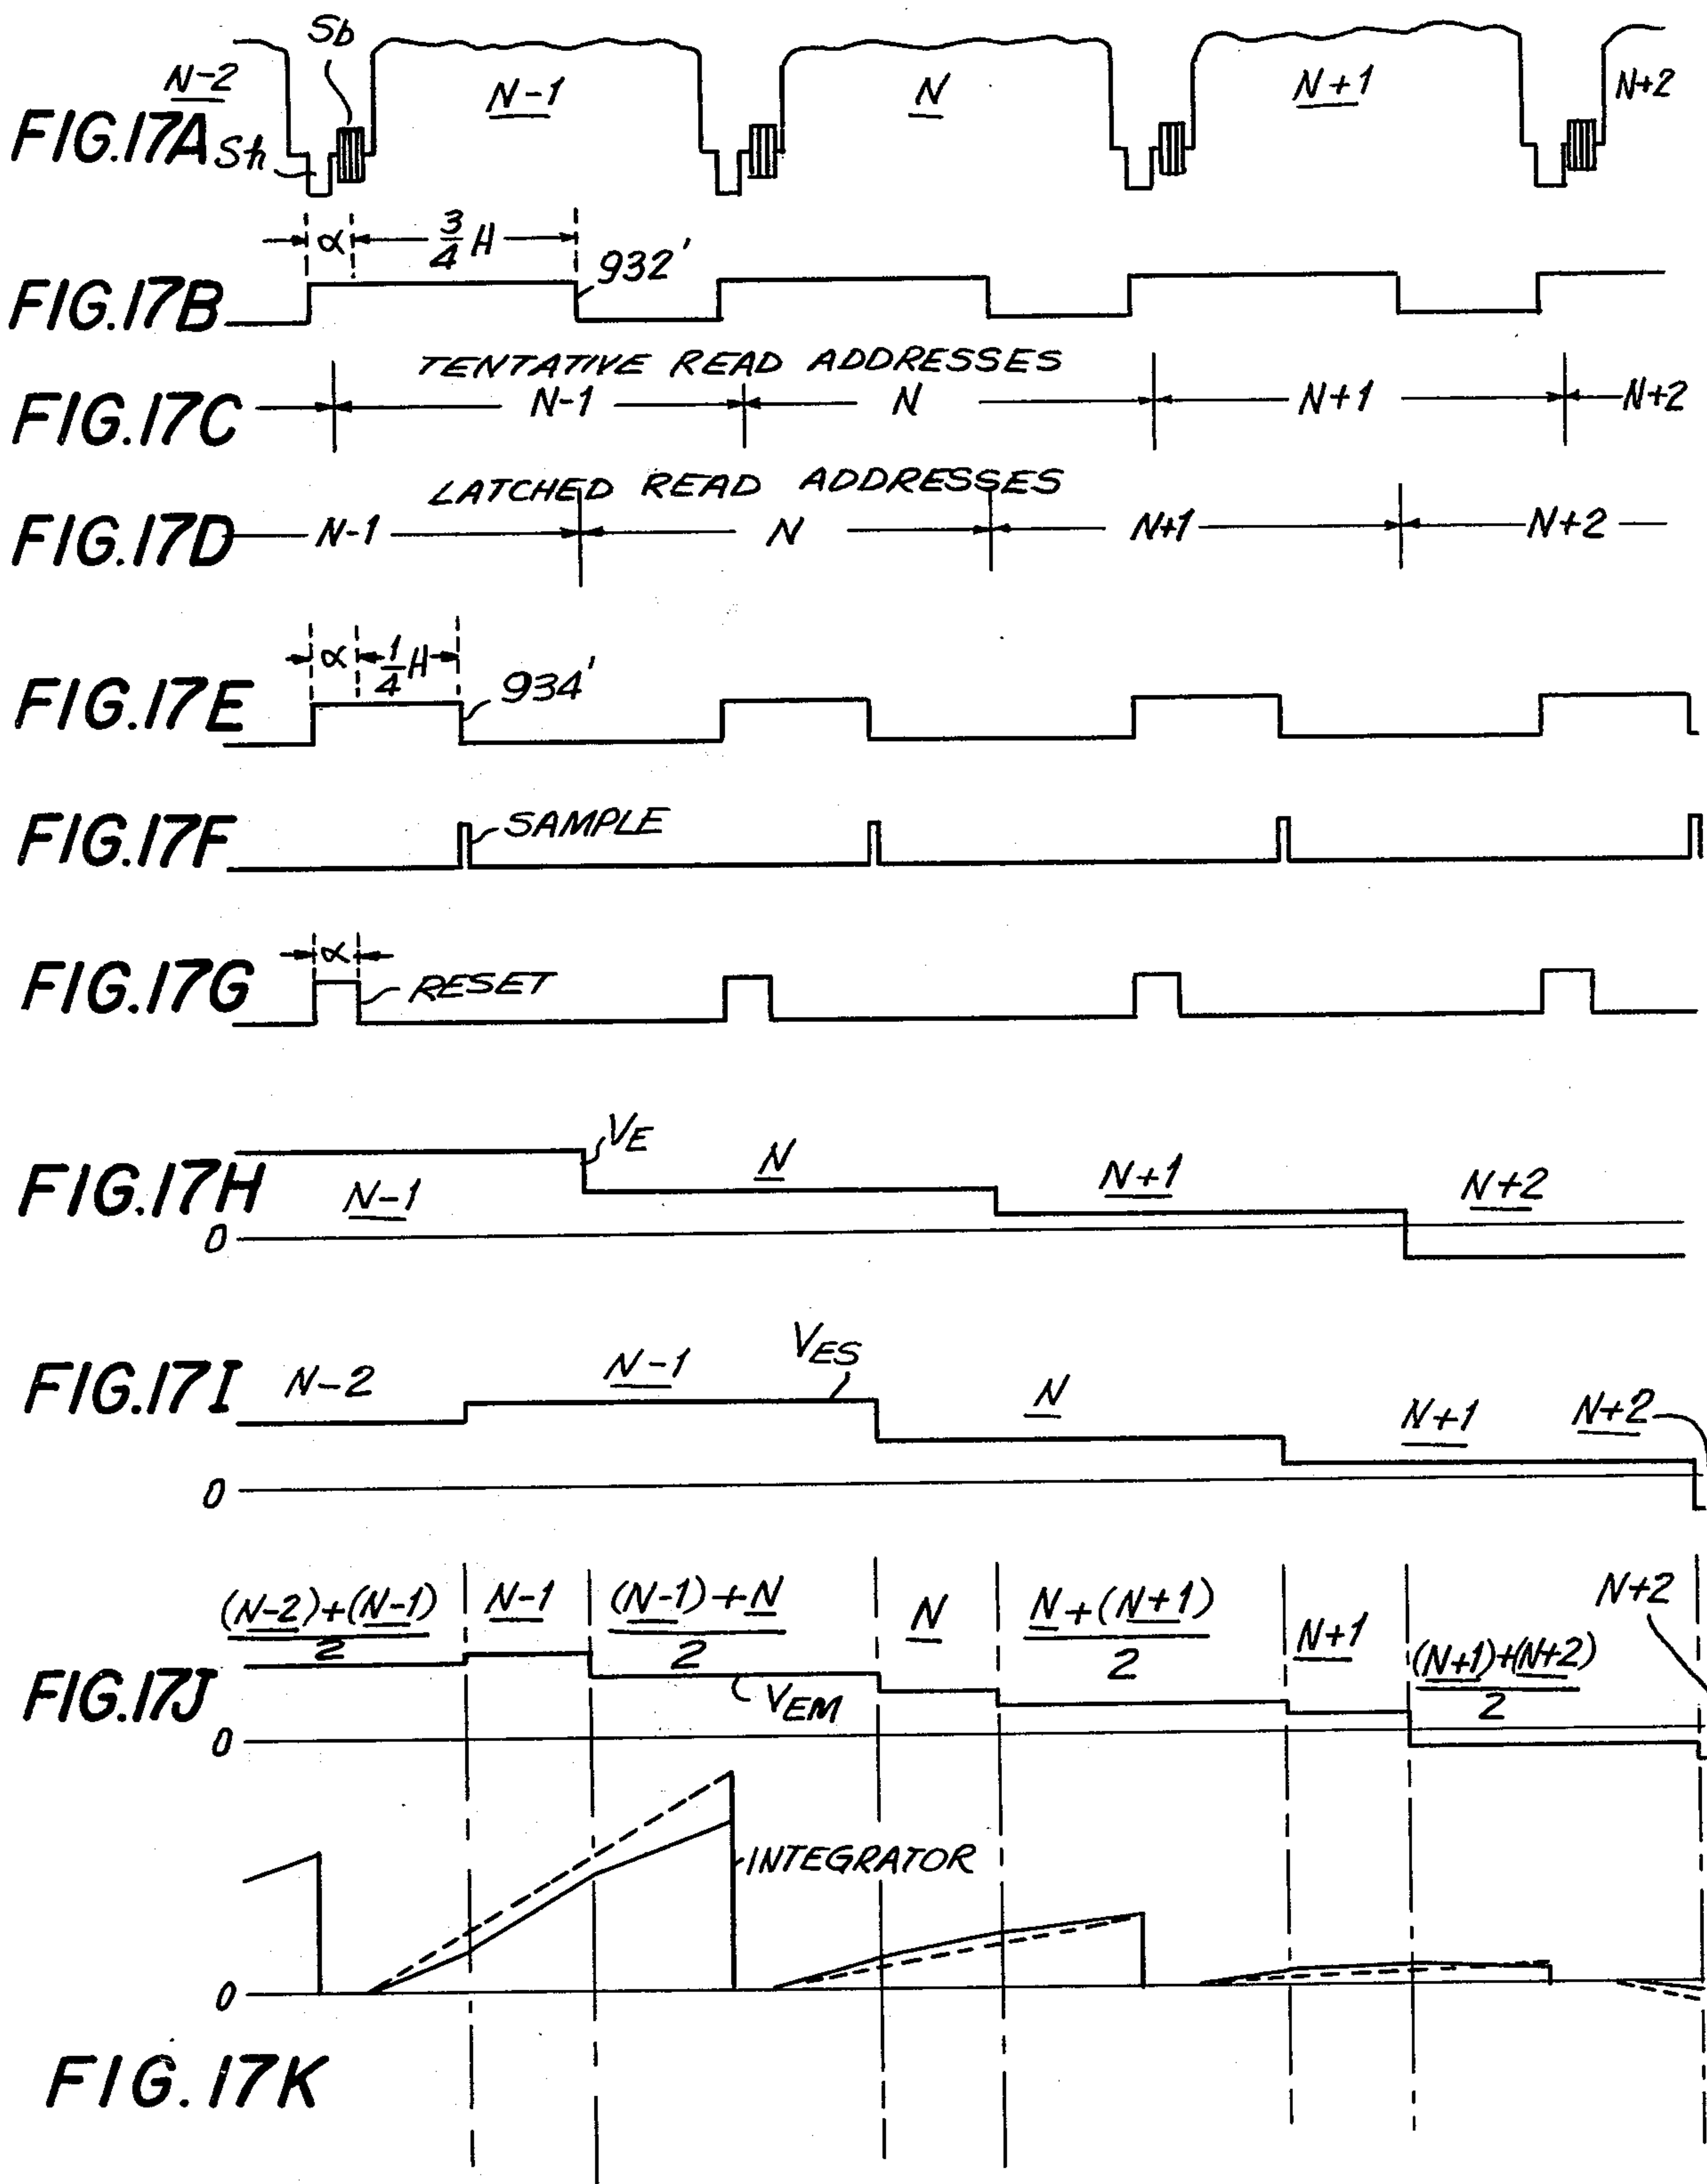 Sb
N-2
N-1
N
N+1
N+2
FIG.17A
Sh
α
3/4 H
932'
FIG.17B
TENTATIVE READ ADDRESSES
FIG.17C
N-1
N
N+1
N+2
LATCHED READ ADDRESSES
FIG.17D
N-1
N
N+1
N+2
α
1/4 H
934'
FIG.17E
FIG.17F
SAMPLE
α
FIG.17G
RESET
VE
FIG.17H
N-1
N
N+1
N+2
0
FIG.17I
N-2
N-1
VES
N
N+1
N+2
0
(N-2)+(N-1)
2
N-1
(N-1)+N
2
N
N+(N+1)
2
N+1
(N+1)+(N+2)
2
N+2
FIG.17J
VEM
0
INTEGRATOR
0
FIG.17K